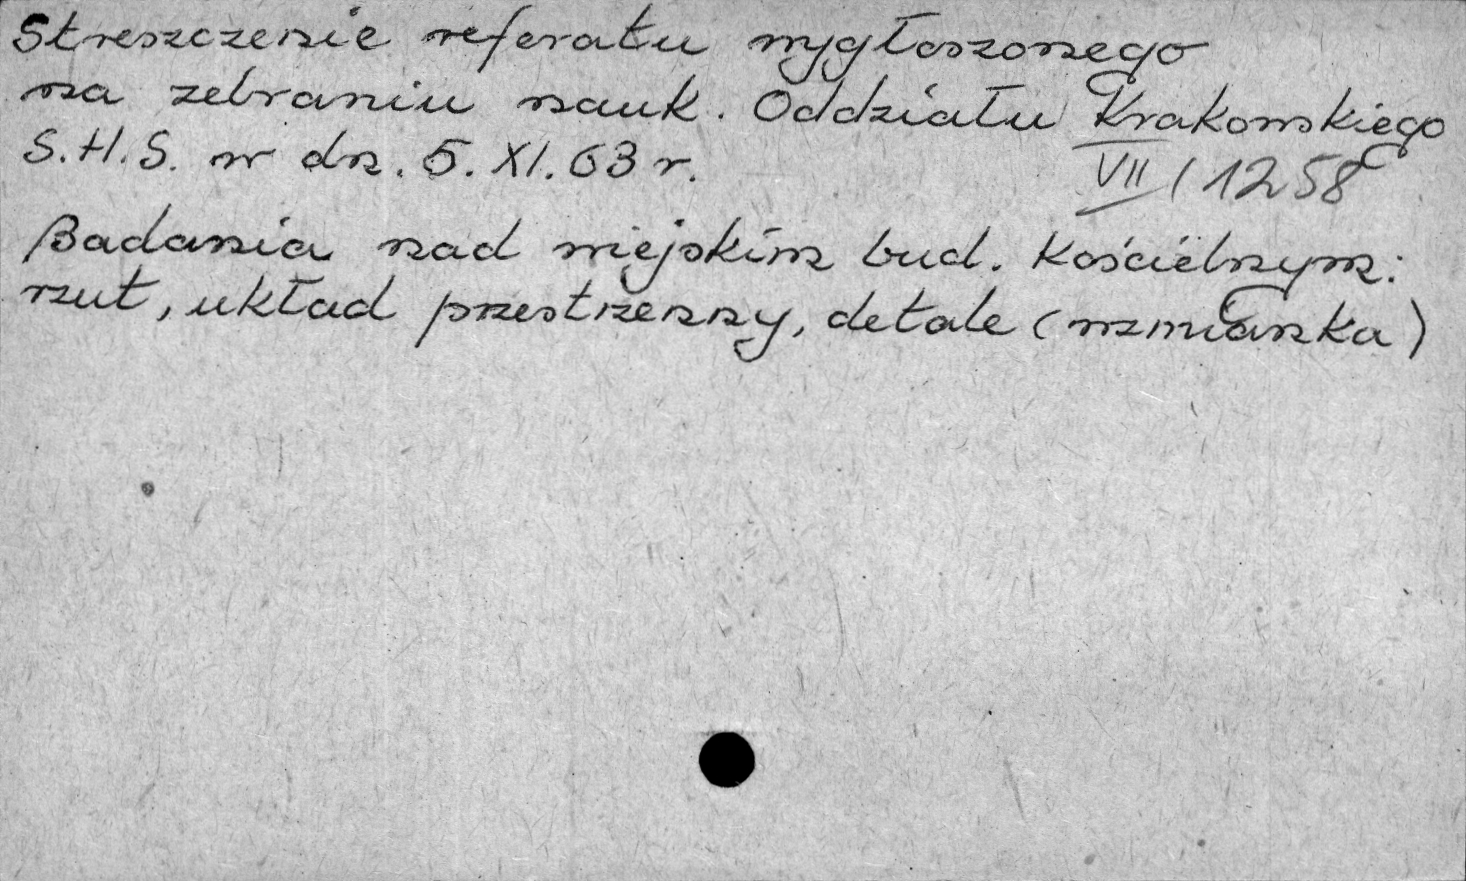 Streszczenie referatu wygłoszonego
na zebraniu nauk. Oddziału Krakowskiego
S.H.S. w dn. 5. XI. 63 r.
VII / 1258
Badania nad wiejskim bud. Kościelnym:
rzut, układ przestrzenny, detale (wzmianka)